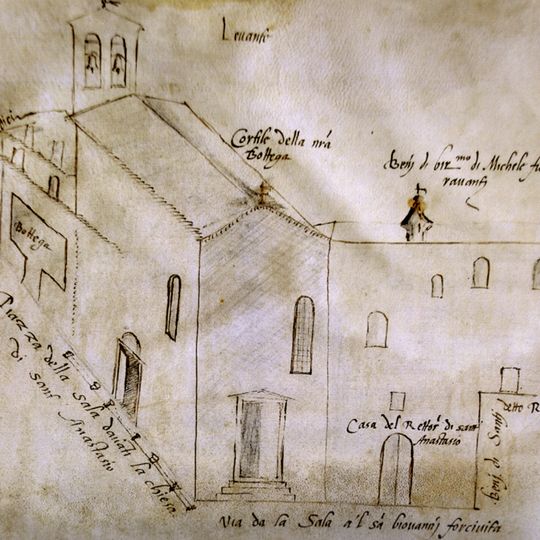 Levante
Cortile della nrã
Bottega
Beñ di bir.mo di Michele fio
ravanti
Bottega
Piazza della Sala davati la chiesa
di sant Anastasio
Casa del Rettor di sant
Anastasio
detto R
Beñ di Santi
Via da la Sala a l sã Giovannj forcivita